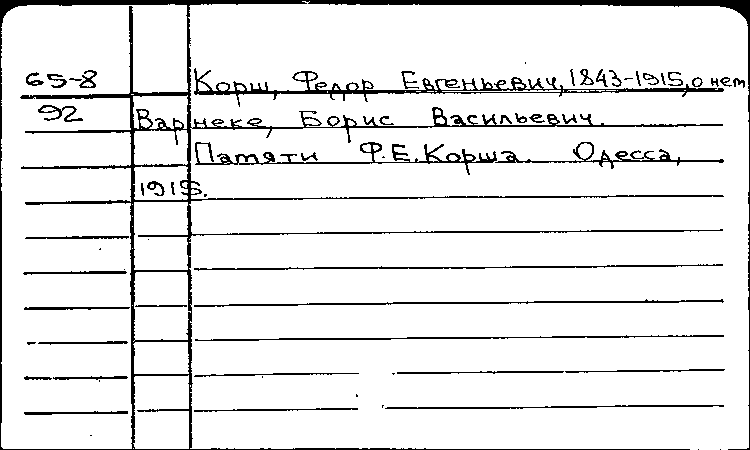 65-8 Корш, Федор Евгеньевич, 1843-1915, о нем
92 Варнеке, Борис Васильевич.
Памяти Ф.Е.Корша. Одесса,
1915.